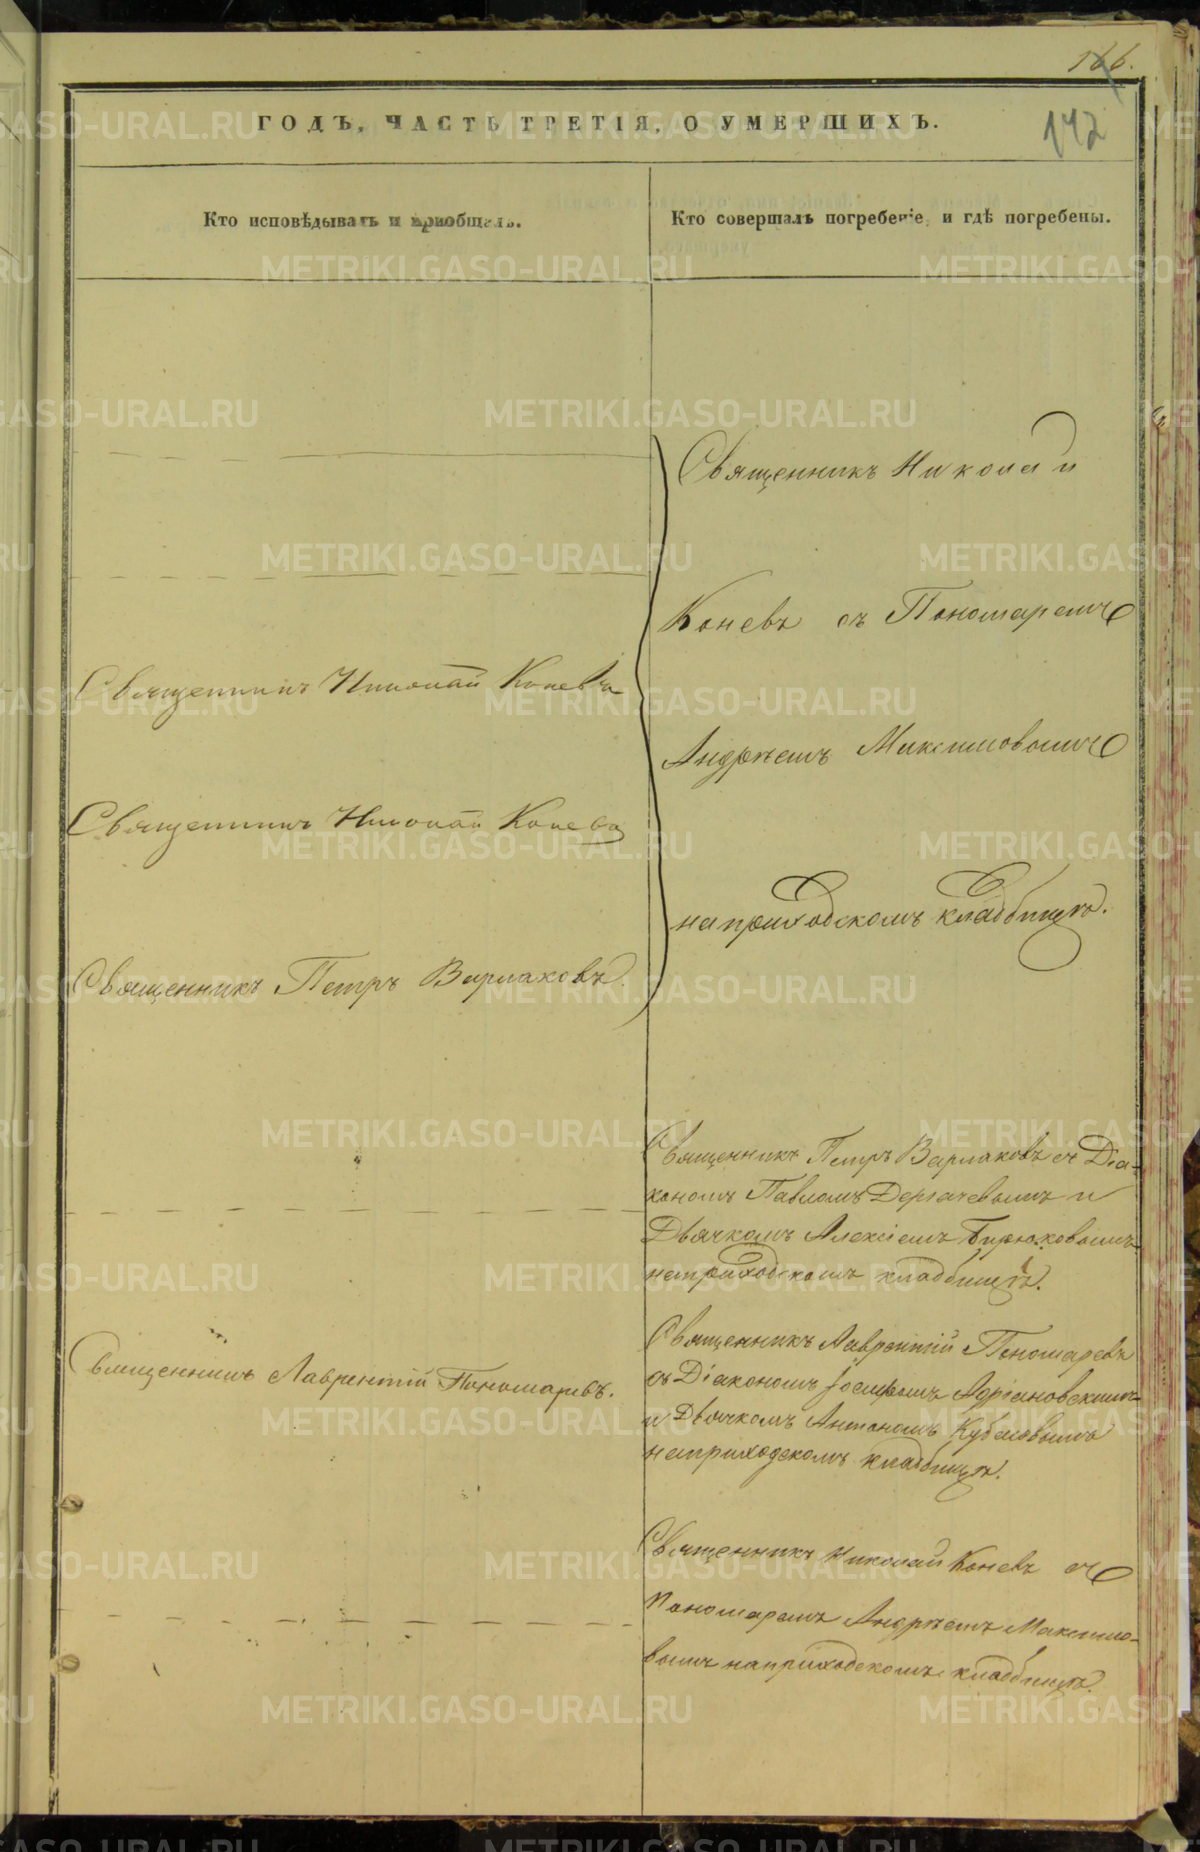 166.
142
ГОДЪ, ЧАСТЬ ТРЕТІЯ, О УМЕРШИХЪ.
Кто исповѣдывалъ и пріобщалъ.
Кто совершалъ погребеніе, и гдѣ погребены.
Священникъ Николай
Коневъ съ Пономаремъ
Священникъ Николай Коневъ
Андреемъ Максимовымъ
Священникъ Николай Коневъ
на приходскомъ кладбищѣ.
Священникъ Петръ Варлаковъ.
Священникъ Петръ Варлаковъ съ Діа-
кономъ Павломъ Дергачевымъ и
Дьячкомъ Алексіемъ Бирюковымъ
на приходскомъ кладбищѣ.
Священникъ Лаврентій Пономаревъ
съ Діакономъ Іосифомъ Адріановскимъ
Священникъ Лаврентій Пономаревъ.
и Дьячкомъ Антономъ
на приходскомъ кладбищѣ.
Священникъ Николай Коневъ съ
Пономаремъ Андреемъ Максимо-
вымъ на приходскомъ кладбищѣ.
METRIKI.GASO-URAL.RU